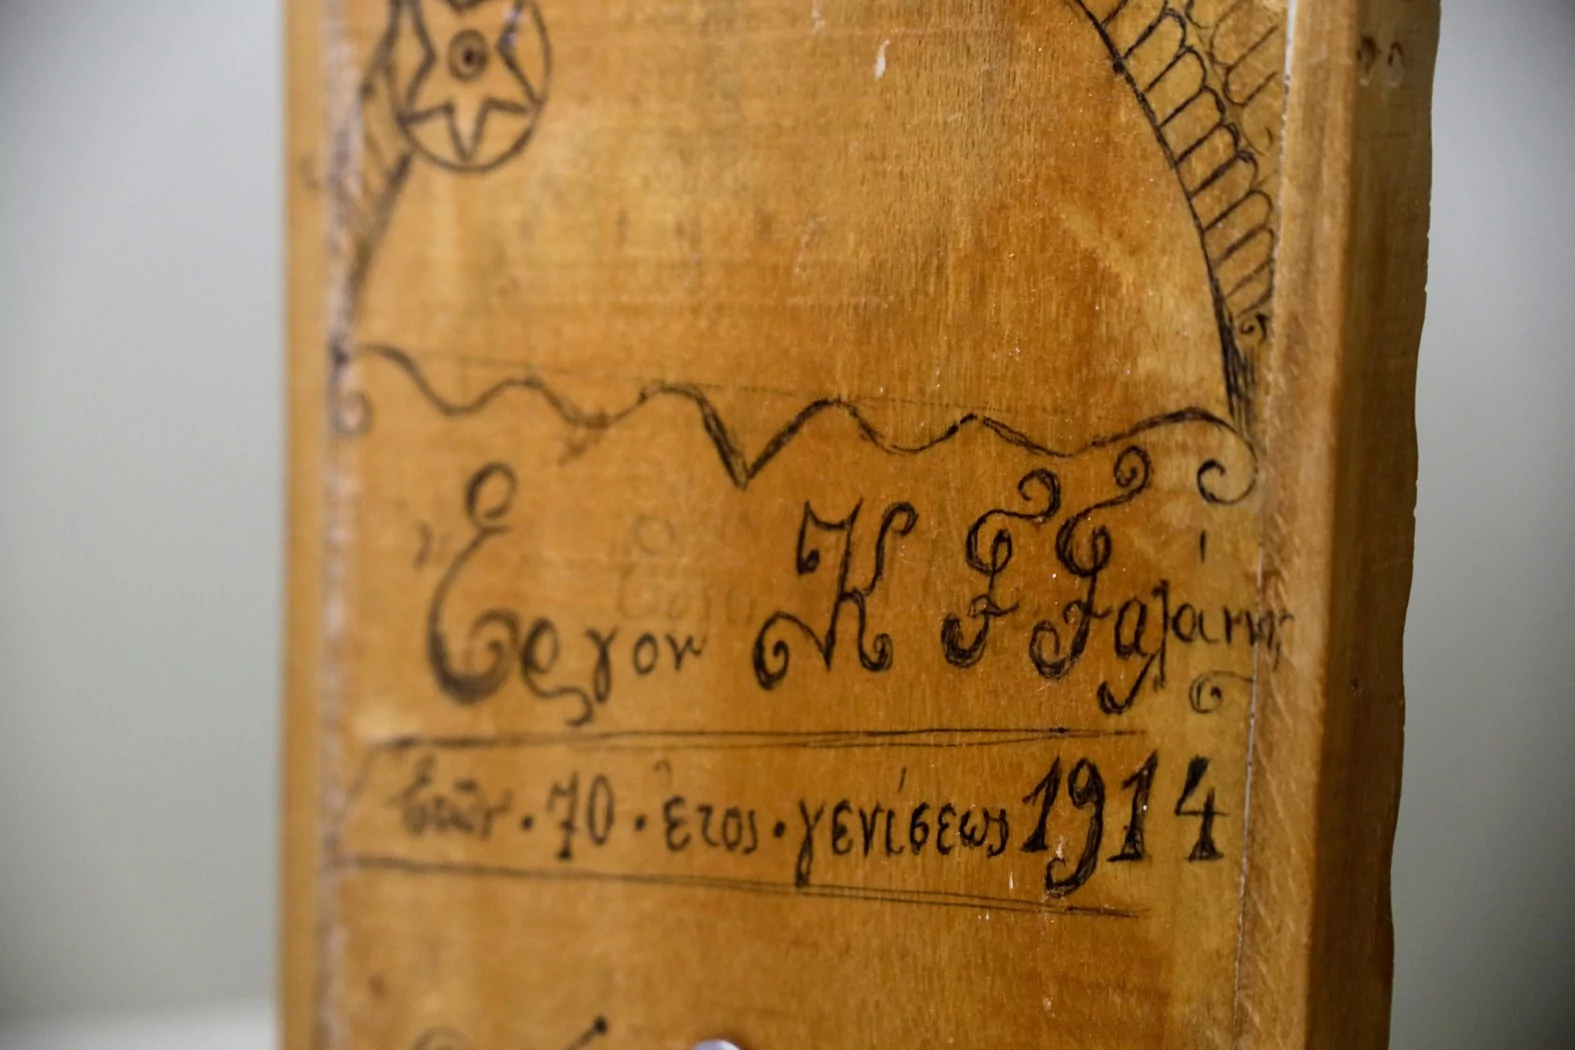 Ἔργον Κ Γ Γαλάνης
ἐτῶν · 70 · ἔτος · γενίσεως 1914